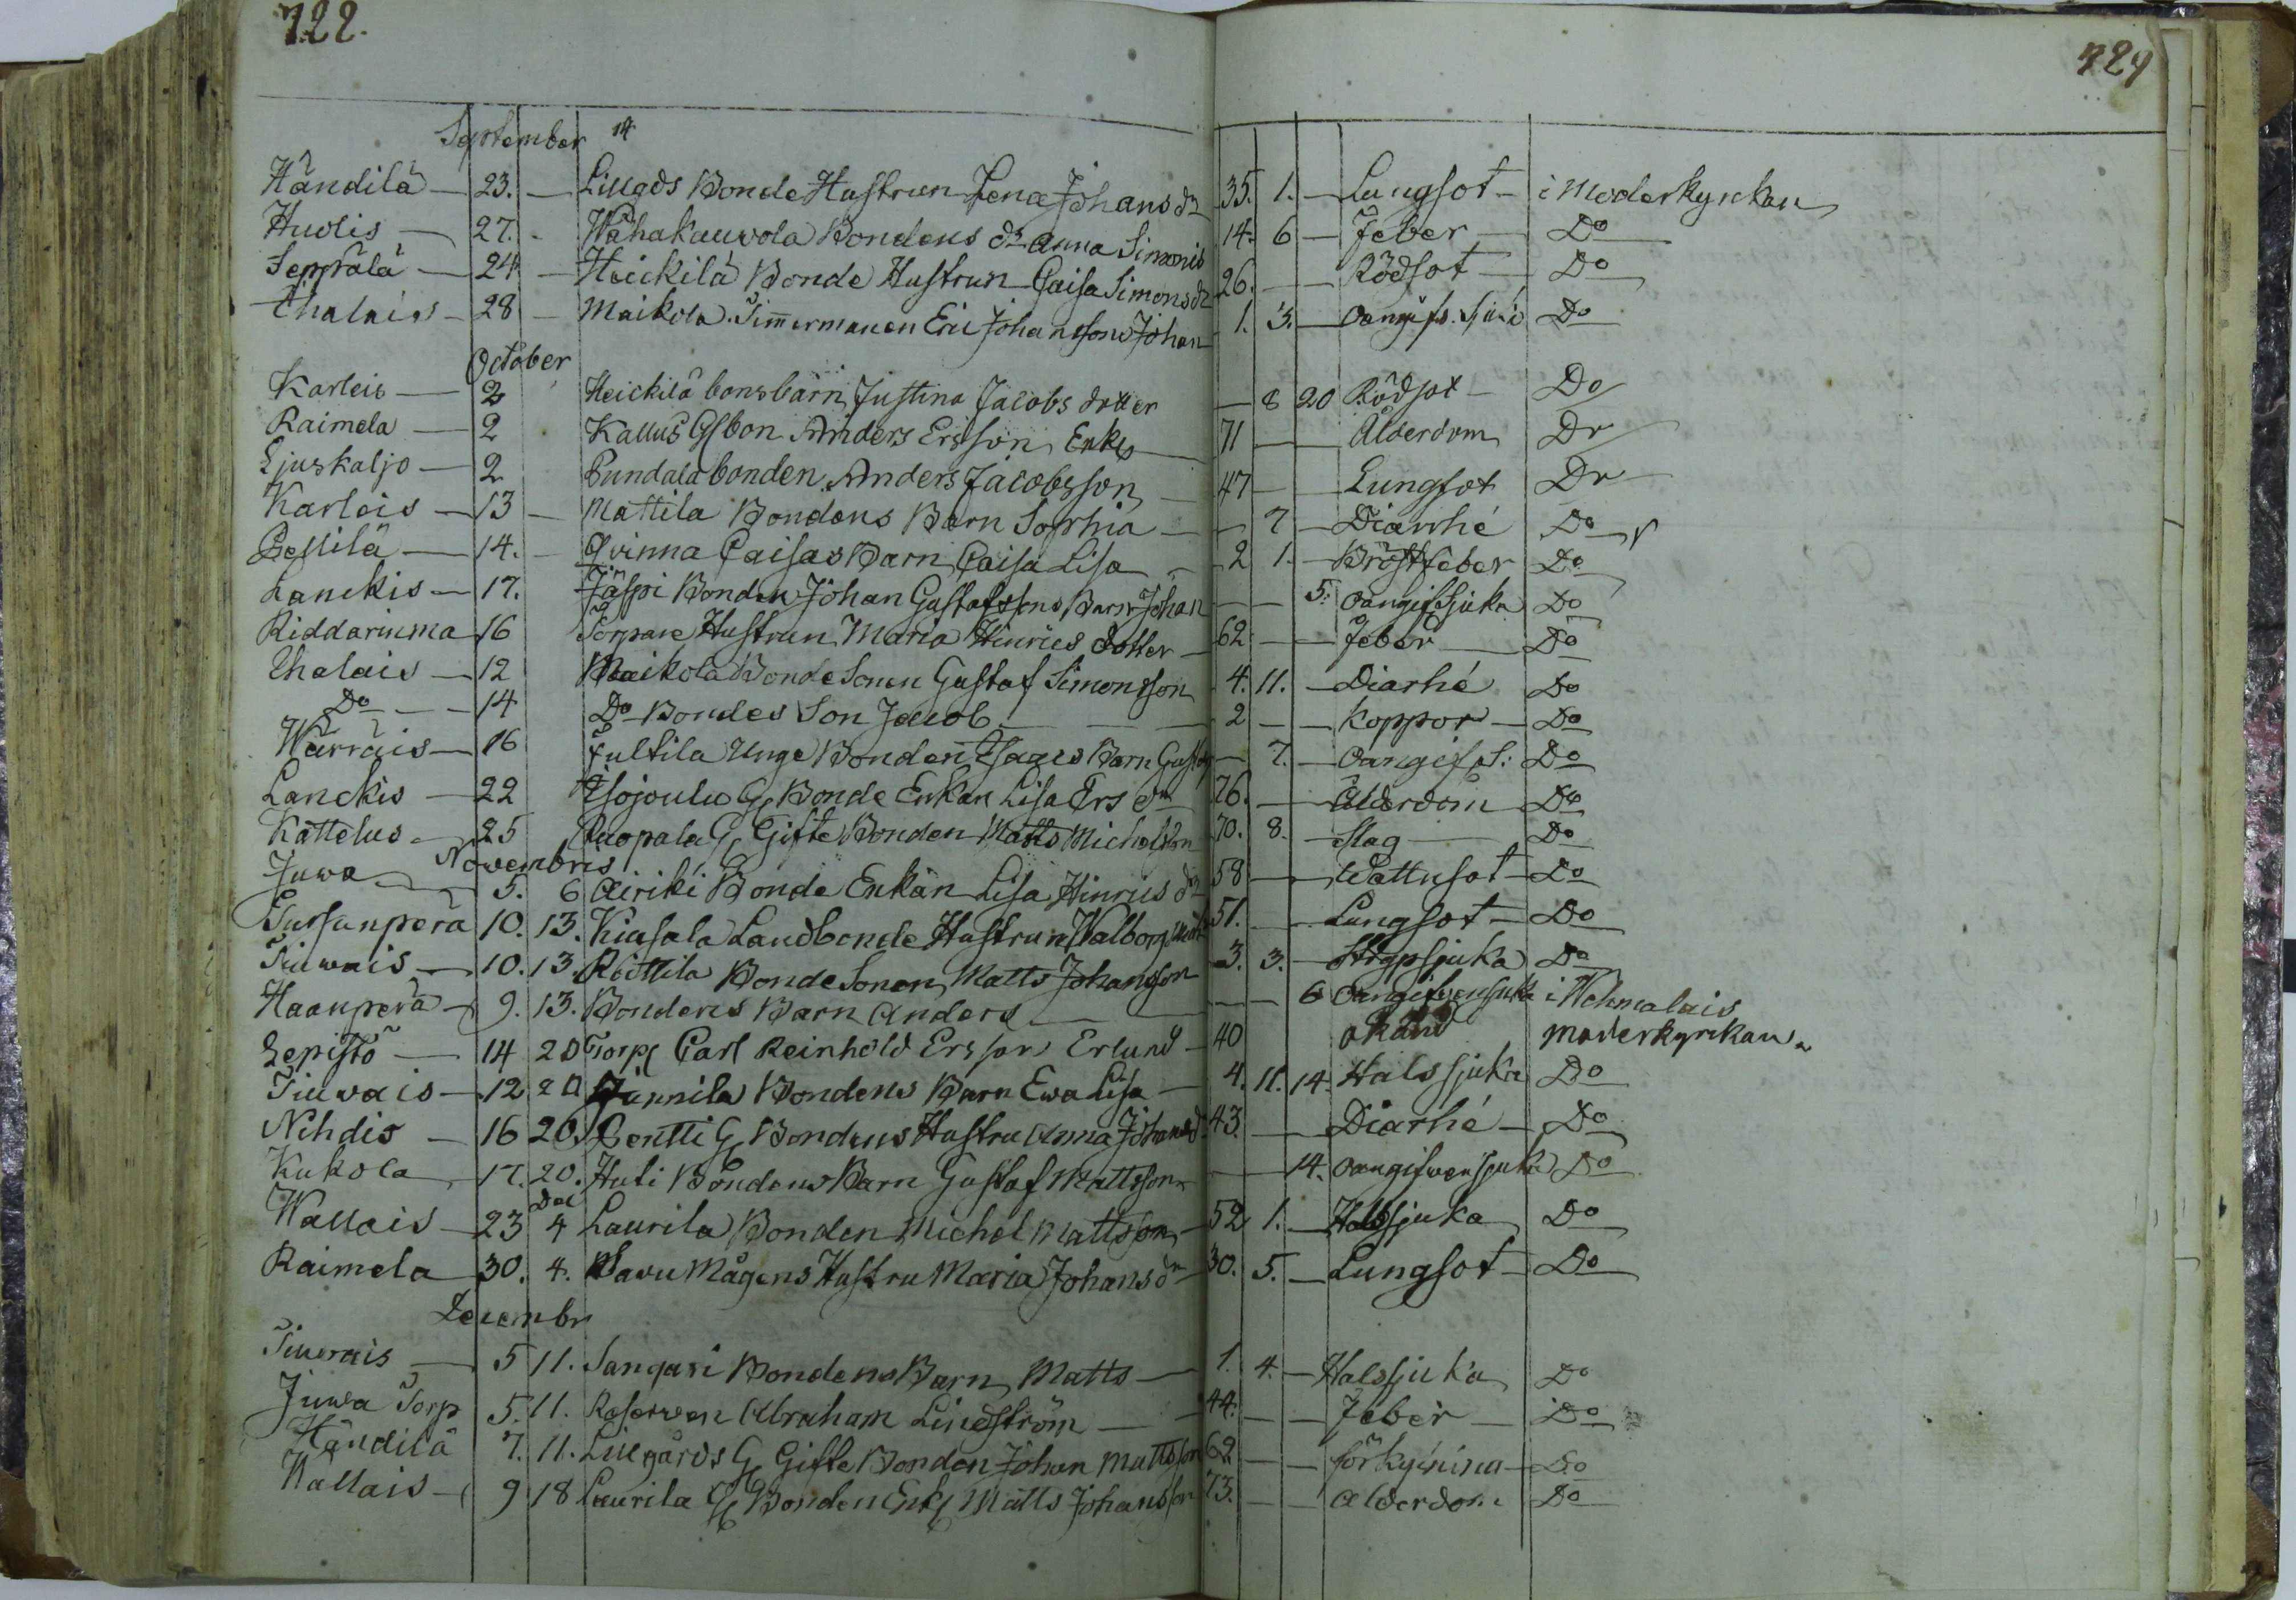 722.
729
September 14
Händilä 23. Lillgds Bonde Hustrun Lena Johans dr 35. 1. Lungsot i Moderkyrckan
Huolis 27. Wähakauvola Bondens dr Anna Simonis 14. 6 Feber Do
Seppälä 24 Heickilä Bonde Hustrun Caisa Simons dr 26. Rödsot Do
Thalais 28 Maikola Timmermannen Eric Johanssons Johan 1. 3. Do
October
Karleis 2 Heickilä bons barn Justina Jacobs dotter 8 20 Rödsot Do
Raimela 2 Kallus Gl bon Anders Ersson Enkl 71 Ålderdom Do
Ljuskaljo 2 Pundala bonden Anders Jacobsson 47 Lungsot Do
Karleis 13 Mattila Bondens Barn Sophia 7 Diarrhé Do
Pellilä 14. Qvinna Caisas Barn Caisa Lisa 2 1. Bröstfeber Do
Lanckis 17. Jäspi Bonden Johan Gustafssons Barn Johan 5. oangif Sjuka Do
Riddarinma 16 Torpare Hustrun Maria Hinrics dotter 62 Feber Do
Thalais 12 Maikola Bonde Sonen Gustaf Simonsson 4. 11. Diarhé Do
Do 14 Do Bondes Son Jacob 2 Koppor Do
Wärräis 16 Jultila Unge Bonden Isaacs Barn Gustaf 7. oangif S: Do
Lanckis 22 Isojoulu G Bonde Enkan Lisa Ers dr 76. Ålderdom Do
Kattelus 25 Ruopala G Gifte Bonden Matts Michelson 70. 8. Slag Do
Novembris
Juwa 5. 6 Airiki Bonde Enkan Lisa Hinrics dr 58 Wattusot Do
Sursunperä 10. 13. Kiasala Landbonde Hustrun Walborg 51. Lungsot Do
Tiuwais 10. 13. Röttila Bonde Sonen Matts Johansson 3. 3. Strypsjuka Do
Haanperä 9. 13. Bondens Barn Anders 6 oangifven sjuka i Wehmalais
Lepistö 14 20 Torp Carl Reinhold Ersson Erlund 40 okänd moderkyrkan
Tiuvais 12 20 Jannila Bondens Barn Ewa Lisa 4. 11. 14. Hals sjuka Do
Nihdis 16 20. Pentti G Bondens Hustru Anna Johansd 43. Diarhé Do
Kukola 17. 20. Huti Bondens Barn Gustaf Mattsson 14. oangifwen sjuka Do
Dec
Wallais 23 4 Laurila Bonden Michel Mattsson 52 1. Halssjuka Do
Raimela 30. 4. Savu Mågens Hustru Maria Johans dr 30. 5. Lungsot Do
Decembr
Tiuvais 5 11. Sangari Bondens Barn Matts 1. 4. Halssjuka Do
Juwa Torp 5. 11. Reserven Abraham Lindström 44. Feber Do
Händilä 7. 11. Lillgårds G Gifte Bonden Johan Mattsson 62 Do
Wallais 9 18 Laurila G Bonden Enkl Matts Johansson 73. Alderdom Do